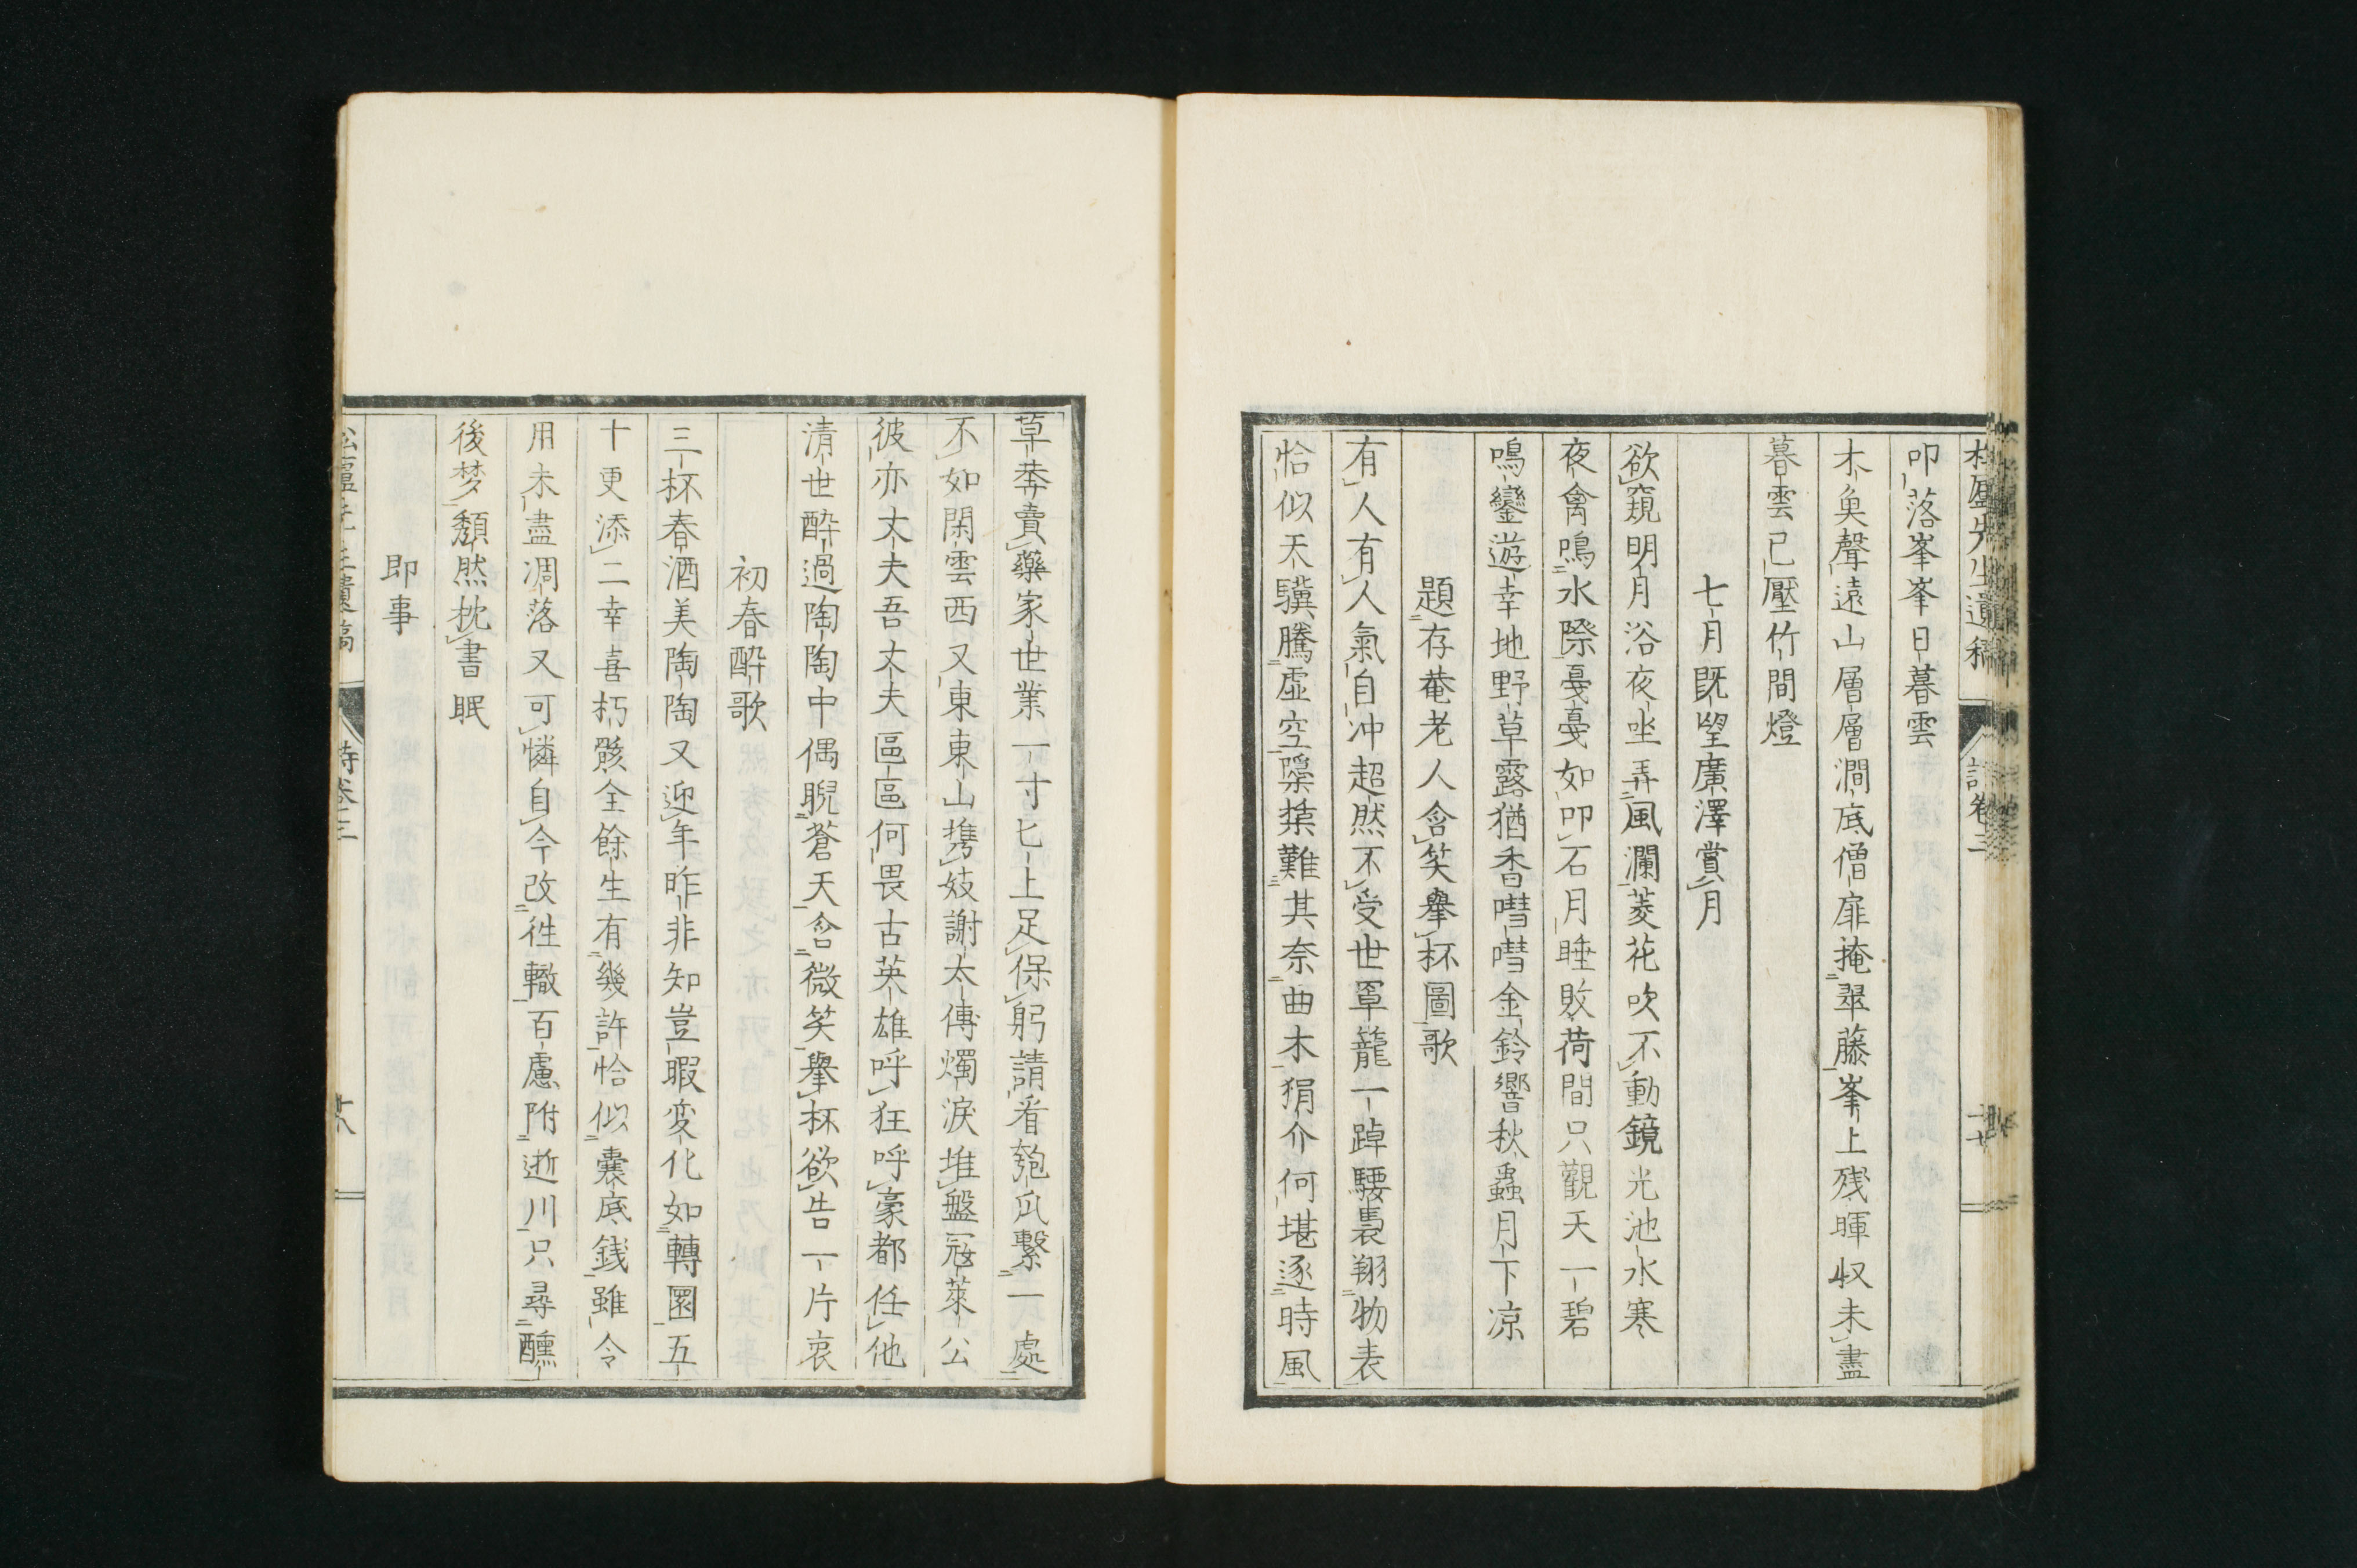 叩落峯峯日暮雲
木魚聲遠山層層澗底僧扉掩翠藤峯上残暉収未盡
暮雲已壓竹間燈
七月既望廣澤賞月
欲窺明月浴夜坐弄風瀾菱花吹不動鏡光池水寒
夜禽鳴水際戞戞如叩石月睡敗荷間只觀天一碧
鳴鑾遊幸地野草露猶香㗲㗲金鈴響秋蟲月下凉
題存菴老人含笑擧杯圖歌
有人人有人氣自冲超然不受世罩籠一踔騕褭翔物表
恰似天驥騰虚空檃㯳難其奈曲木狷介何堪逐時風
草莾賣藥家世業一寸匕上足保躬請看匏瓜繋一處
不如閑雲西又東東山携妓謝太傅燭淚堆盤冦萊公
彼亦丈夫吾丈夫區區何畏古英雄呼狂呼豪都任他
清世酔過陶陶中偶睨蒼天含微笑擧杯欲告一片衷
初春酔歌
三杯春酒美陶陶又迎年昨非知豈暇変化如轉圜五
十更添二幸喜朽骸全餘生有幾許恰似嚢底銭雖令
用未盡凋落又可憐自今改徃轍百慮附逝川只尋醺
後梦頽然枕書眠
即事
松廬先生遺稿
詩卷三